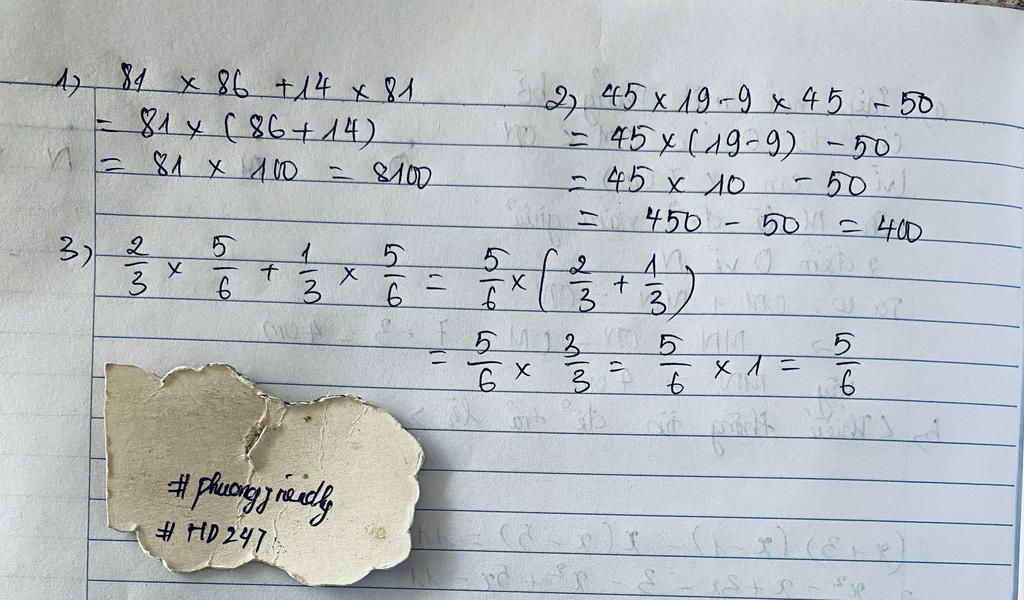 1) 81 × 86 + 14 × 81
= 81 × (86 + 14)
= 81 × 100 = 8100
2) 45 × 19 - 9 × 45 - 50
= 45 × (19 - 9) - 50
= 45 × 10 - 50
= 450 - 50 = 400
3) 2/3 × 5/6 + 1/3 × 5/6 = 5/6 × (2/3 + 1/3)
= 5/6 × 3/3 = 5/6 × 1 = 5/6
# HD247